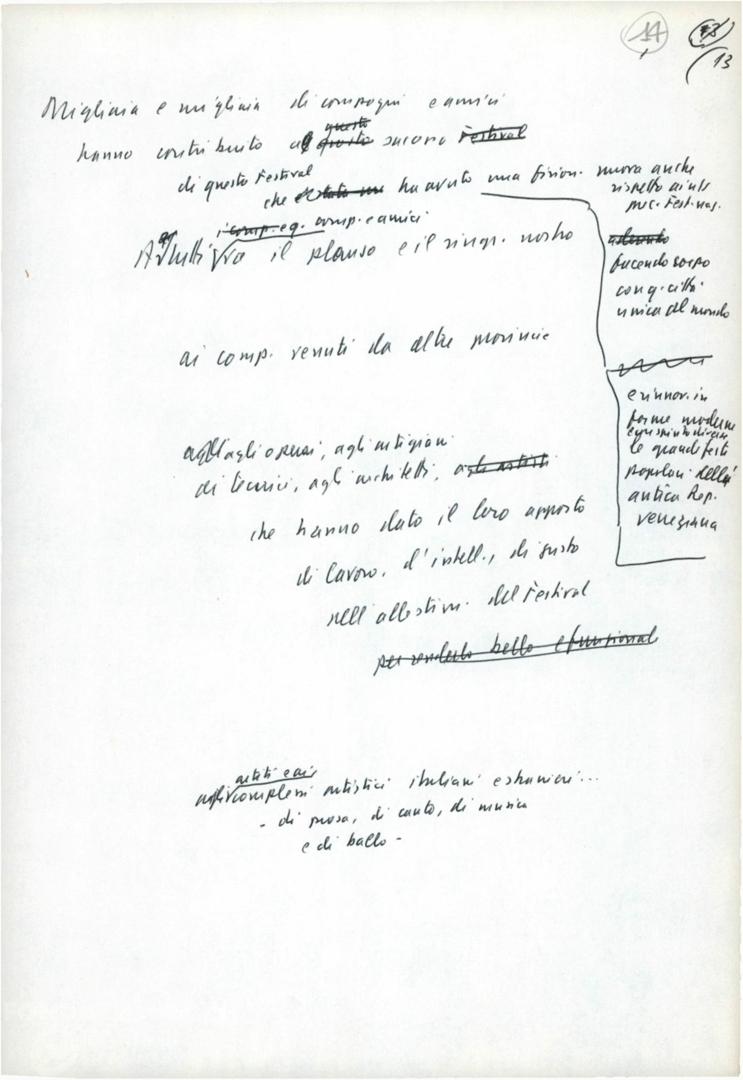 14 13
13
Migliaia e migliaia di compagni e amici
questo
hanno contribuito al questo successo Festival
di questo Festival
che è stato un ha avuto una fision. nuova anche
rispetto ai
prec. Festivas.
i comp. e q. comp. e amici
A tutti va il plauso e il ringr. nostro
facendo corpo
con q. città
unica al mondo
ai comp. venuti da altre provincie
e rinnov. in
forme moderne
le grandi feste
popolari della
antica Rep.
veneziana
agli operai, agli artigiani
di tecnici, agli architetti, agli artisti
che hanno dato il loro apporto
di lavoro, d'intell., di gusto
nell'allestim. del Festival
per renderlo bello e funzional
artisti e ai
agli complessi artistici italiani e stranieri...
- di prosa, di canto, di musica
e di ballo -